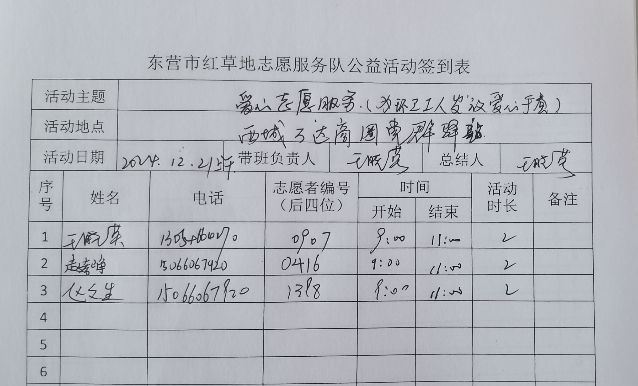 东营市红草地志愿服务队公益活动签到表
活动主题 爱心志愿服务(为环卫工人发放爱心手套)
活动地点 西城万达商圈党群驿站
活动日期 2024.12.21上午 带班负责人 王晓荣 总结人 王晓荣
序号 姓名 电话 志愿者编号(后四位) 时间 活动时长 备注
开始 结束
1 王晓荣 0907 9:00 11:00 2
2 15066067920 0416 9:00 11:00 2
3 15066067920 1398 9:00 11:00 2
4
5
6